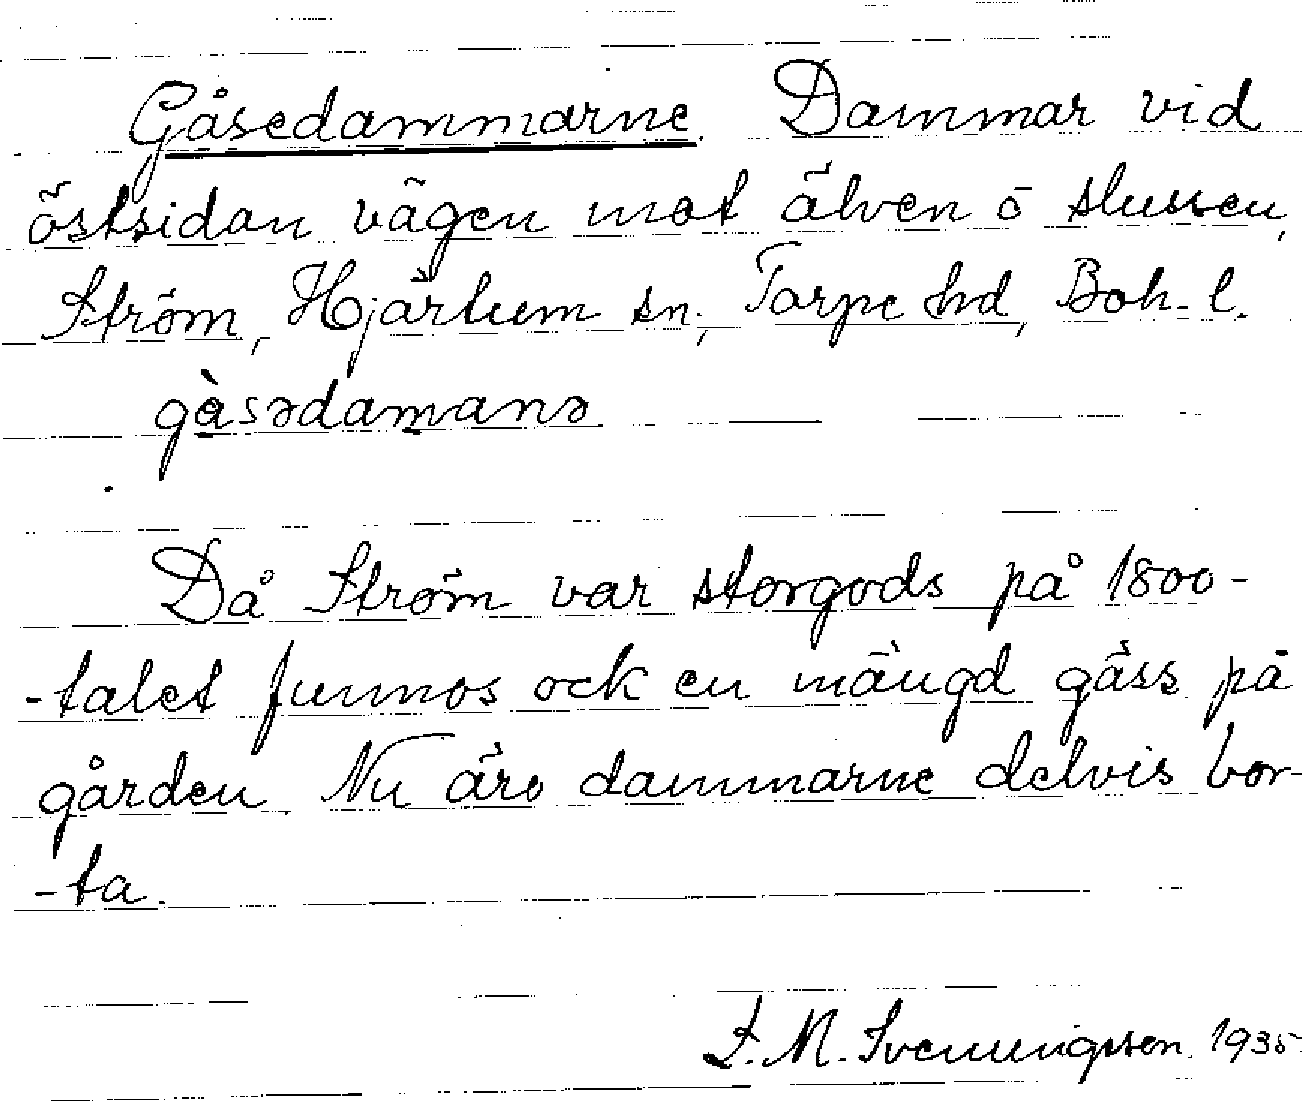 Gåsedammarne. Dammar vid
östsidan vägen mot älven ö slussen,
Ström, Hjärtum sn, Torpe hd, Boh. l.
gàsədamanə
Då Ström var storgods på 1800-
-talet funnos ock en mängd gäss på
gården. Nu äro dammarne delvis bor-
-ta.
F. M. Svenungsson 1935